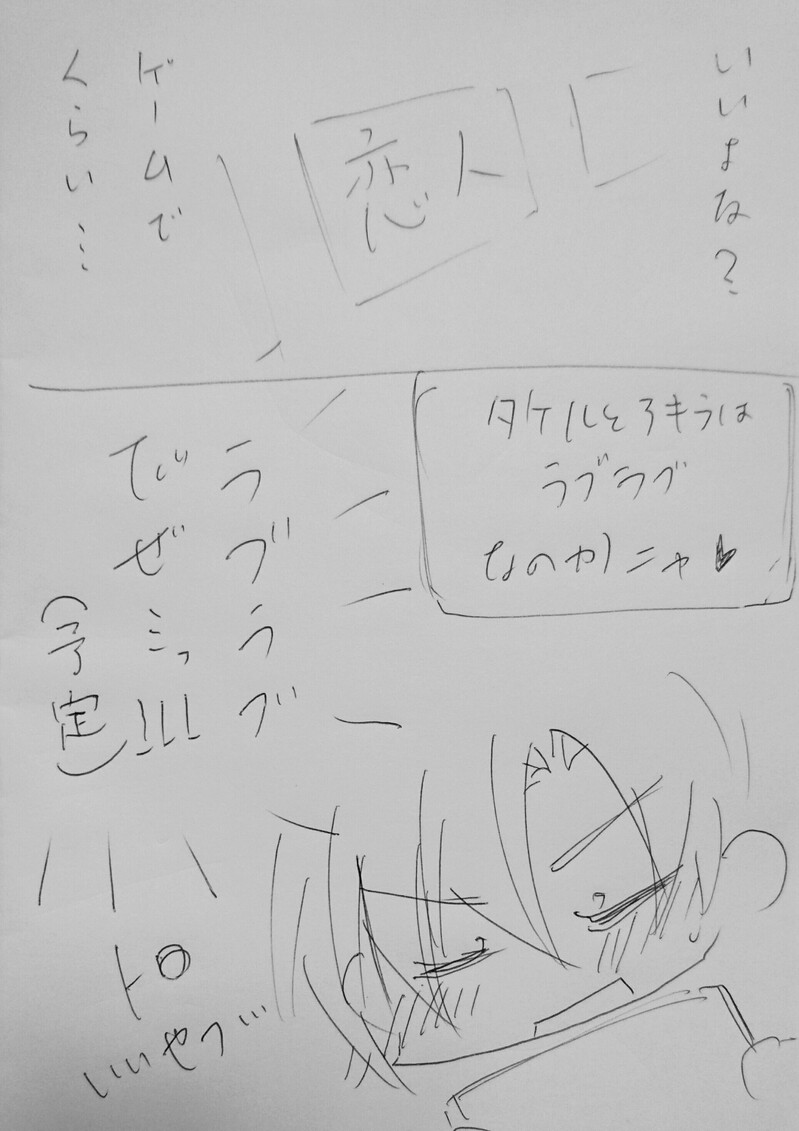 いいよな?
恋人
ゲームで
くらい…
タケルとアキラは
ラブラブ
なのかニャ♥
ラブラブ
だぜミっ!!!
(予定)
トロ
いいやつ…